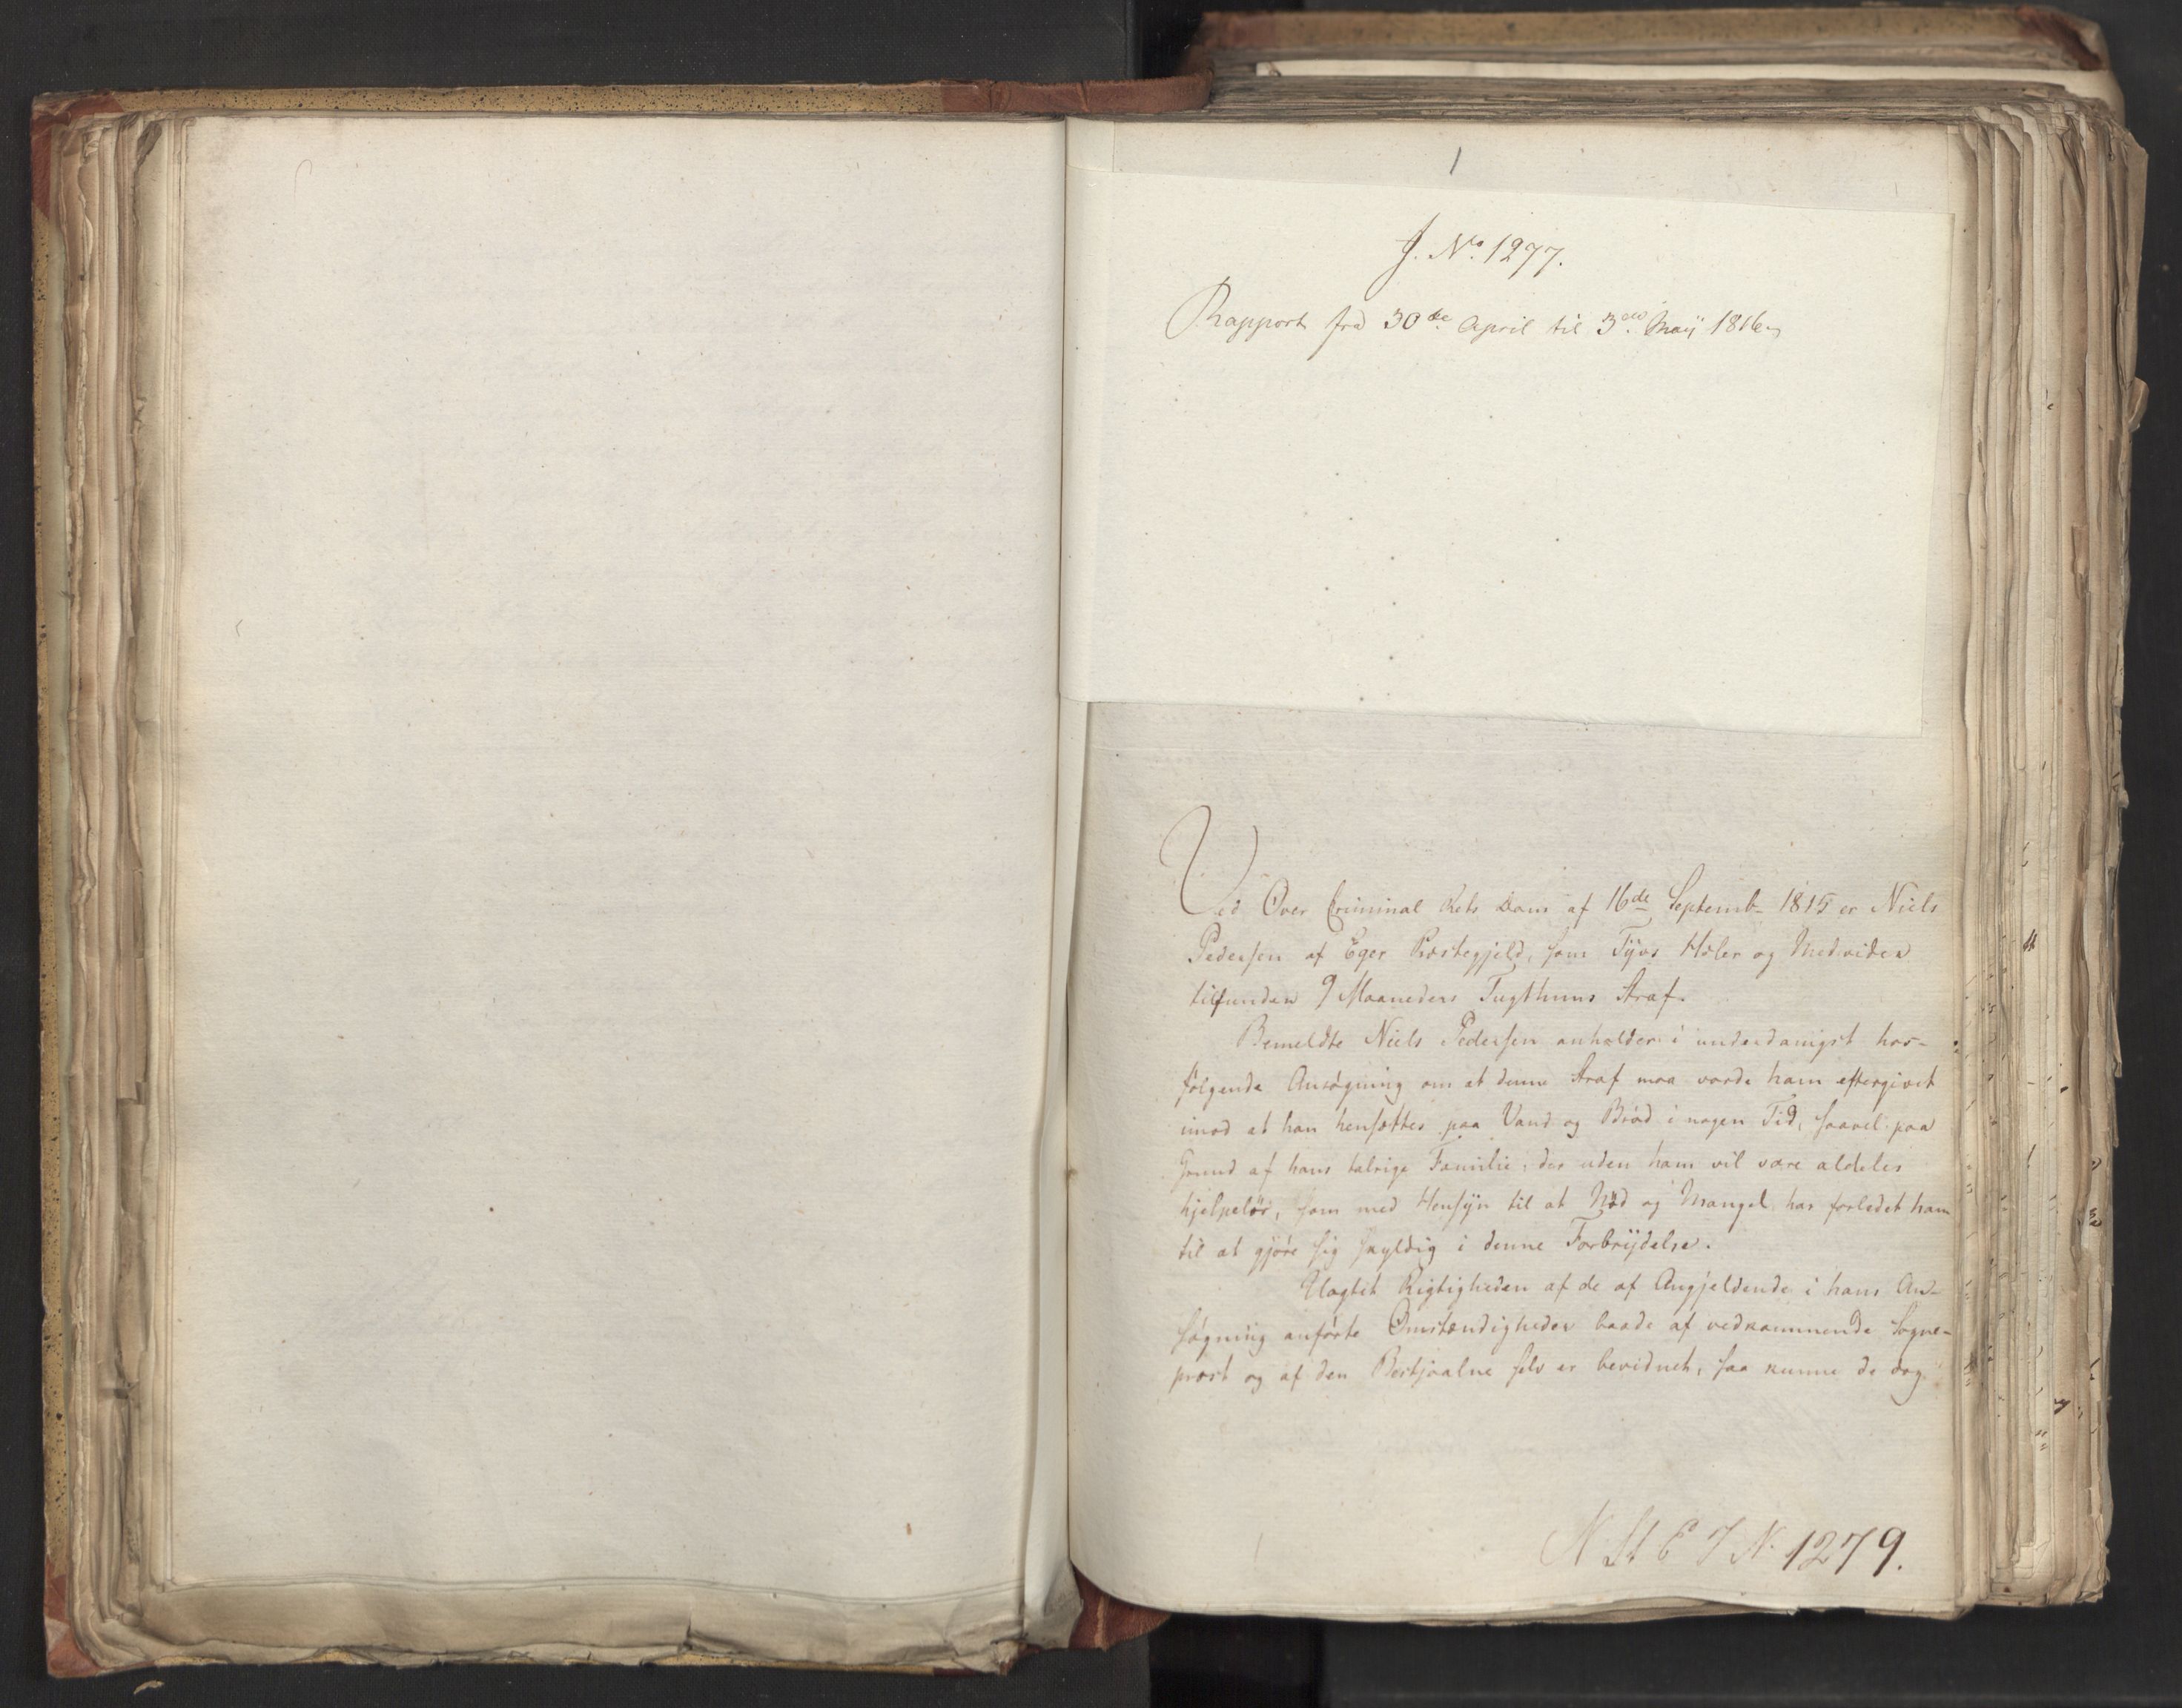 1
J. No. 1277.
Rapport fra 30de April til 3die Maij 1816
Ved Over Criminal Rets Dom af 16de Septemb– 1815 er Niels
Pedersen af Eger Præstegjeld, som Tyvs Hæler og Medvider
tilfunden 9 Maaneders Tugthuus Straf.
Bemeldte Niels Pedersen anholder i underdanigst hos–
følgende Ansøgning om at denne Straf maa vorde ham eftergivet
imod at han hensættes paa Vand og Brød i nogen Tid, saavel paa
Grund af hans talrige Familie, der uden ham vil være aldeles
hjelpeløs, som med Hensyn til at Nød og Mangel har forledet ham
til at gjøre sig skyldig i denne Forbrydelse.
Uagtet Rigtigheden af de af Angjeldende i hans An–
søgning anførte Omstændigheder baade af vedkommende Sogne–
præst og af den Bestjaalne selv er bevidnet, saa kunne de dog
N St E J N. 1279.